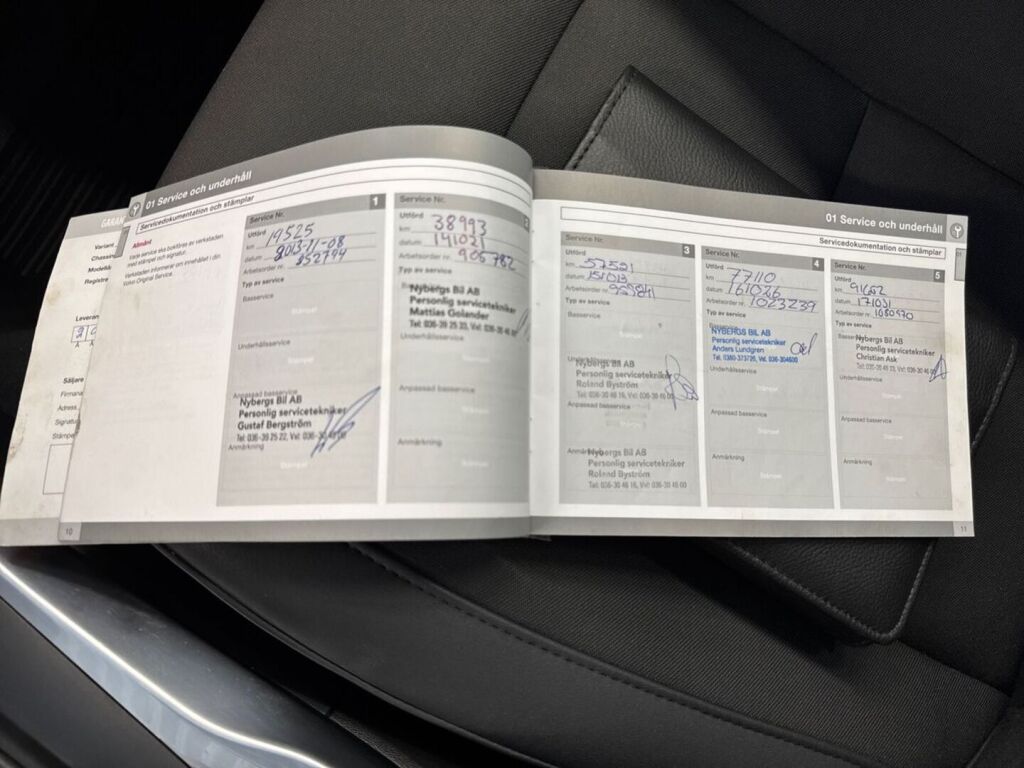 GARAN
Variant
Chassi
Modellå
Registre
Leveran
Säljare
Firmana
Adress
Signatu
Stämpe
01 Service och underhåll
Servicedokumentation och stämplar
Allmänt
Varje service ska bokföras av verkstaden
med stämpel och signatur.
Verkstaden informerar om innehållet i din
Volvo Original Service.
Service Nr. 1
Utförd
km 19525
datum 2013-11-08
Arbetsorder nr. 852744
Typ av service
Basservice
Stämpel
Underhållsservice
Anpassad basservice
Nybergs Bil AB
Personlig servicetekniker
Gustaf Bergström
Tel: 036-39 25 22, Vxl: 036-30 46 00
Anmärkning
Stämpel
10
Service Nr. 2
Utförd
km 38993
datum 141021
Arbetsorder nr. 906782
Typ av service
Nybergs Bil AB
Personlig servicetekniker
Mattias Golander
Tel: 036-39 25 33, Vxl: 036-30 46 00
Underhållsservice
Anpassad basservice
Anmärkning
Stämpel
01 Service och underhåll
Servicedokumentation och stämplar
01
Service Nr. 3
Utförd
km 57521
datum 151013
Arbetsorder nr. 959841
Typ av service
Basservice
Stämpel
Underhållsservice
Nybergs Bil AB
Personlig servicetekniker
Roland Byström
Tel: 036-30 46 16, Vxl: 036-30 46 00
Anpassad basservice
Anmärkning
Nybergs Bil AB
Personlig servicetekniker
Roland Byström
Tel: 036-30 46 16, Vxl: 036-30 46 00
Service Nr. 4
Utförd
km 77110
datum 161026
Arbetsorder nr. 1023239
Typ av service
Basservice
NYBERGS BIL AB
Personlig servicetekniker
Anders Lundgren
Tel. 0380-373726, Vxl 036-304600
Underhållsservice
Stämpel
Anpassad basservice
Stämpel
Anmärkning
Stämpel
Service Nr. 5
Utförd
km 91662
datum 171031
Arbetsorder nr. 1080970
Typ av service
Basservice
Nybergs Bil AB
Personlig servicetekniker
Christian Ask
Underhållsservice
Stämpel
Anpassad basservice
Stämpel
Anmärkning
Stämpel
11